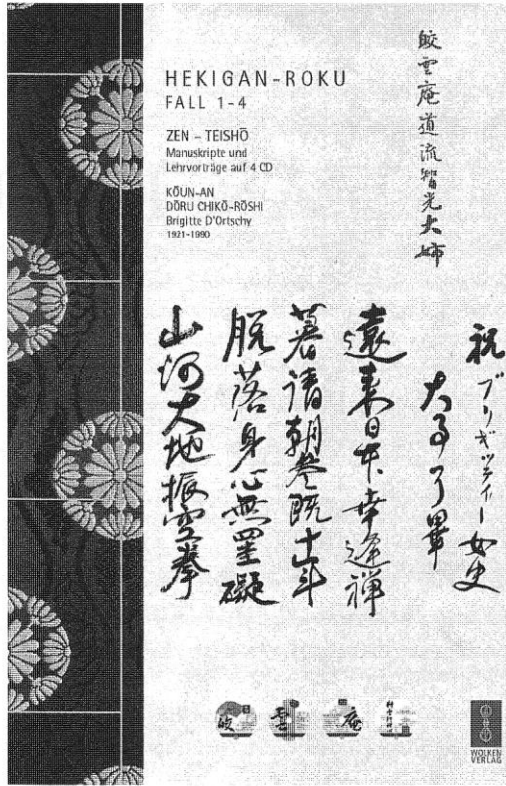 HEKIGAN-ROKU
FALL 1-4
ZEN – TEISHŌ
Manuskripte und
Lehrvorträge auf 4 CD
KŌUN-AN
DŌRU CHIKŌ-RŌSHI
Brigitte D'Ortschy
1921-1990
皎雲庵道流智光大姉
祝 ブリギッティー女史
大事了畢
遠来日本幸逢禅
暮請朝参既十年
脱落身心無罣礙
山河大地振空拳
雲
庵
WOLKEN
VERLAG